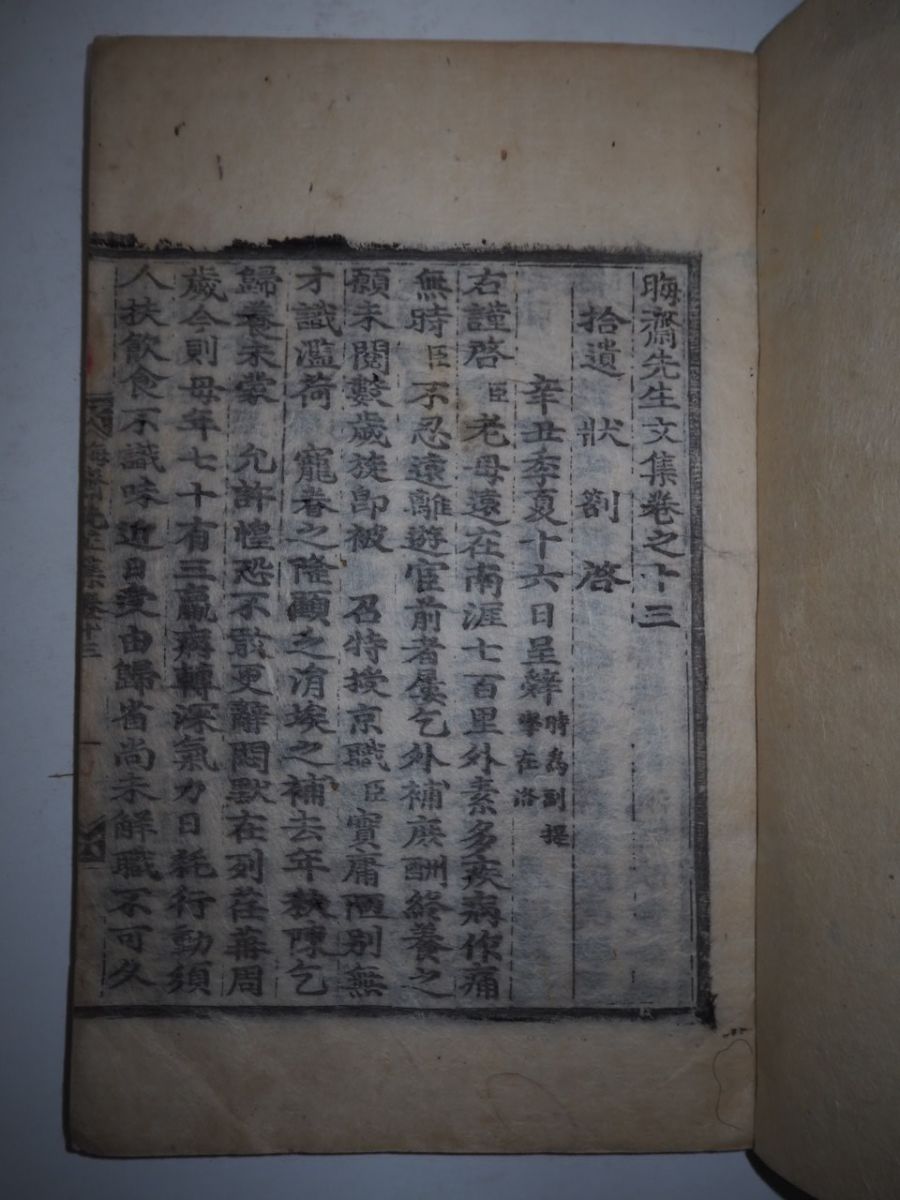 晦齋先生文集卷之十三
拾遺 狀 劄 啓
辛丑季夏十六日呈辭 時爲副提學在洛
右謹啓臣老母遠在南涯七百里外素多疾病作痛
無時臣不忍遠離遊宦前者屢乞外補庶酬終養之
願未閱數歲旋卽被 召特授京職臣實庸陋別無
才識濫荷 寵眷之隆顧之涓埃之補去年秋陳乞
歸養未蒙 允許惶恐不敢更辭悶默在列荏苒周
歲今則母年七十有三羸病轉深氣力日耗行動須
人扶飮食不識味近日受由歸省尙未解職不可久
晦齋先生集卷十三